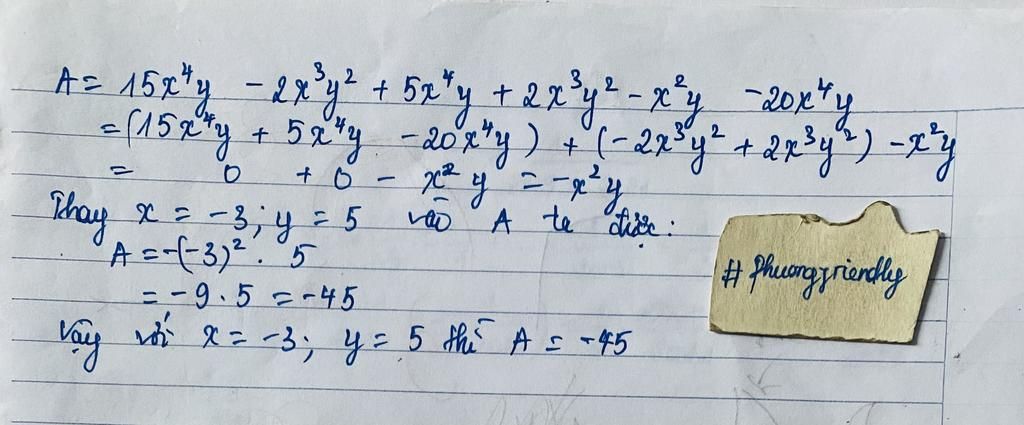 A = 15x⁴y - 2x³y² + 5x⁴y + 2x³y² - x²y - 20x⁴y
= (15x⁴y + 5x⁴y - 20x⁴y) + (-2x³y² + 2x³y²) - x²y
= 0 + 0 - x²y = -x²y
Thay x = -3; y = 5 vào A ta được:
A = -(-3)². 5
= -9.5 = -45
Vậy với x = -3; y = 5 thì A = -45
# Phuongfriendly